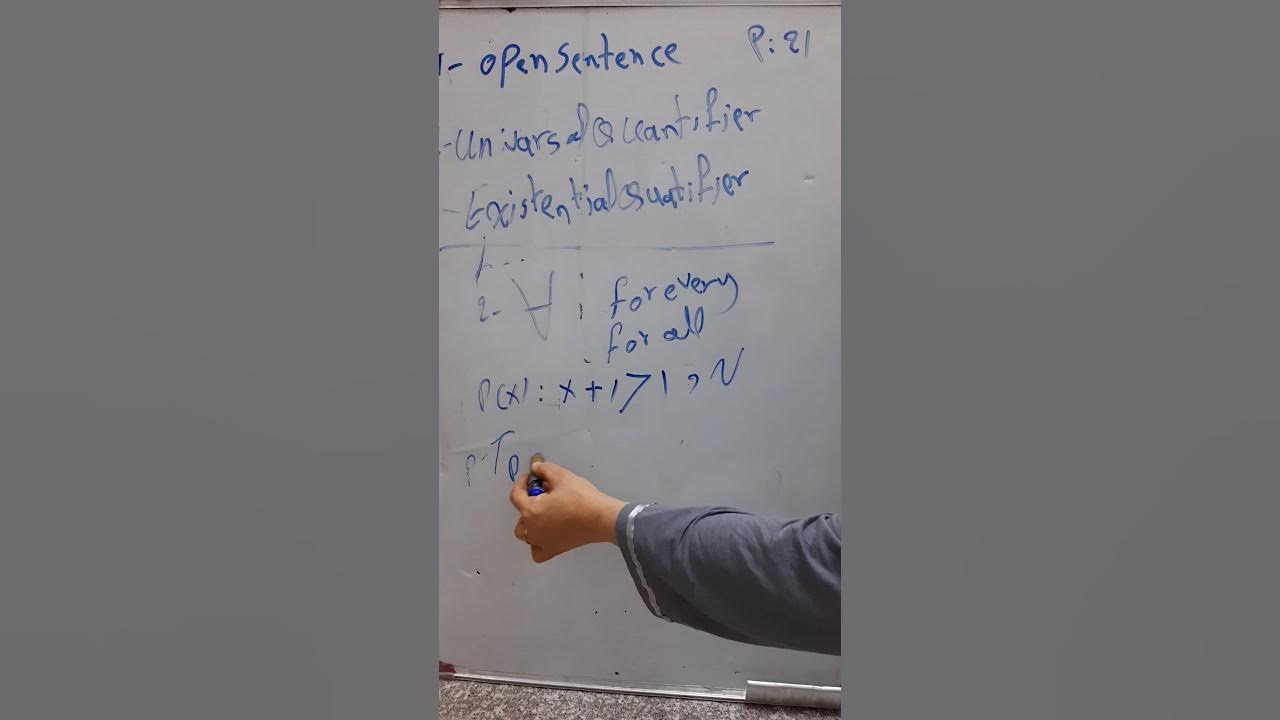 1- open sentence P: 21
- Univarsal Quantifier
- Existential Quatifier
1- ...
2- ∀ ; for every
for all
P(x) : x + 1 > 1 , N
P. T P